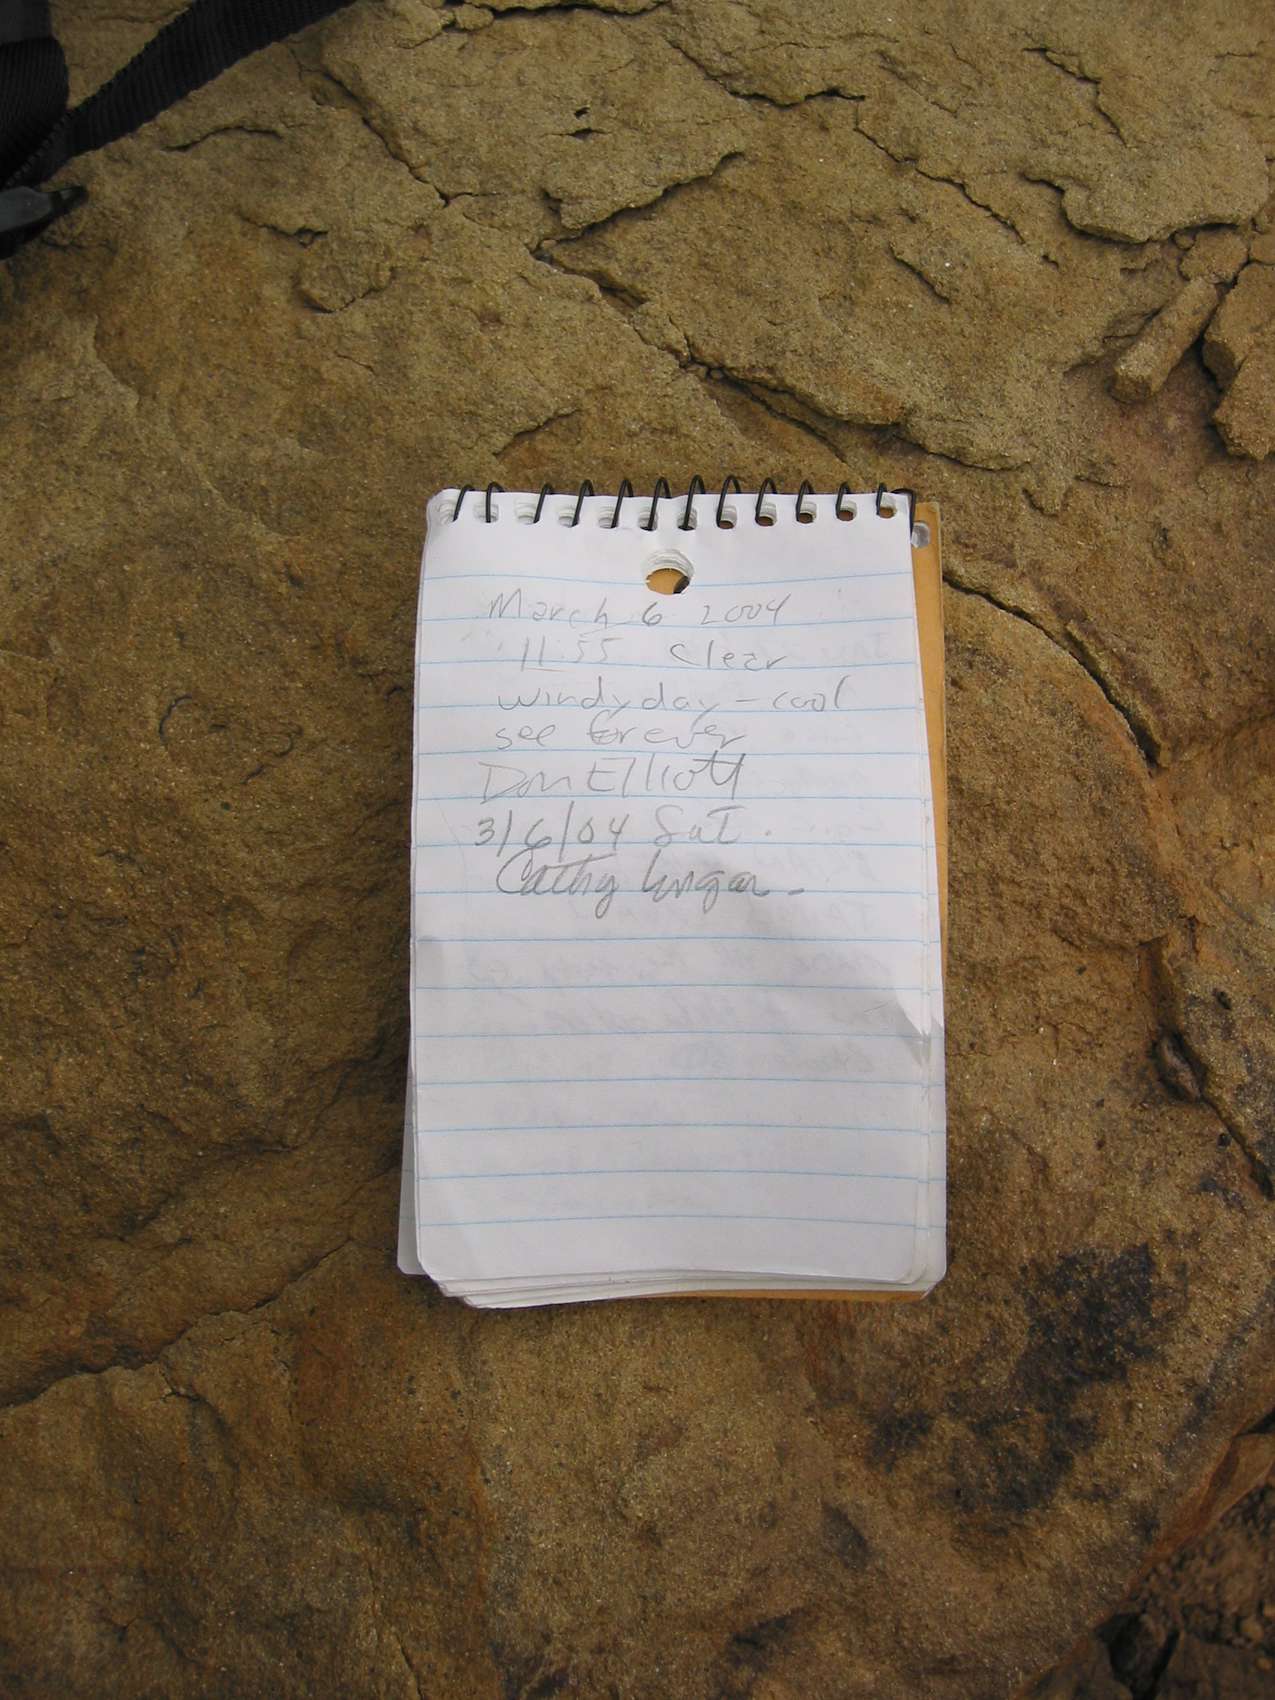 March 6 2004
11:55 Clear
windy day - cool
see forever
Don Elliott
3/6/04 Sat.
Cathy Ungar -